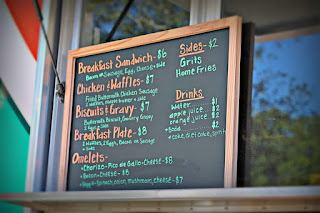 Breakfast Sandwich - $6
Bacon or Sausage, Egg, Cheese + side
Chicken & Waffles - $7
Fried Buttermilk Chicken Sausage
2 Waffles,
Biscuits & Gravy - $7
Buttermilk Biscuit, Savory Gravy
2 Eggs + Side
Breakfast Plate - $8
2 Waffles, 2 Eggs, Bacon or Sausage
+ Side
Omelets -
- Chorizo - Pico de Gallo - Cheese - $8
- Bacon - Cheese - $8
- Veggie - Spinach, onion, Mushroom, cheese - $7
Sides - $2
Grits
Home Fries
Drinks
Water 1
apple juice 2
orange juice 2
Soda 2
coke, diet coke, sprite